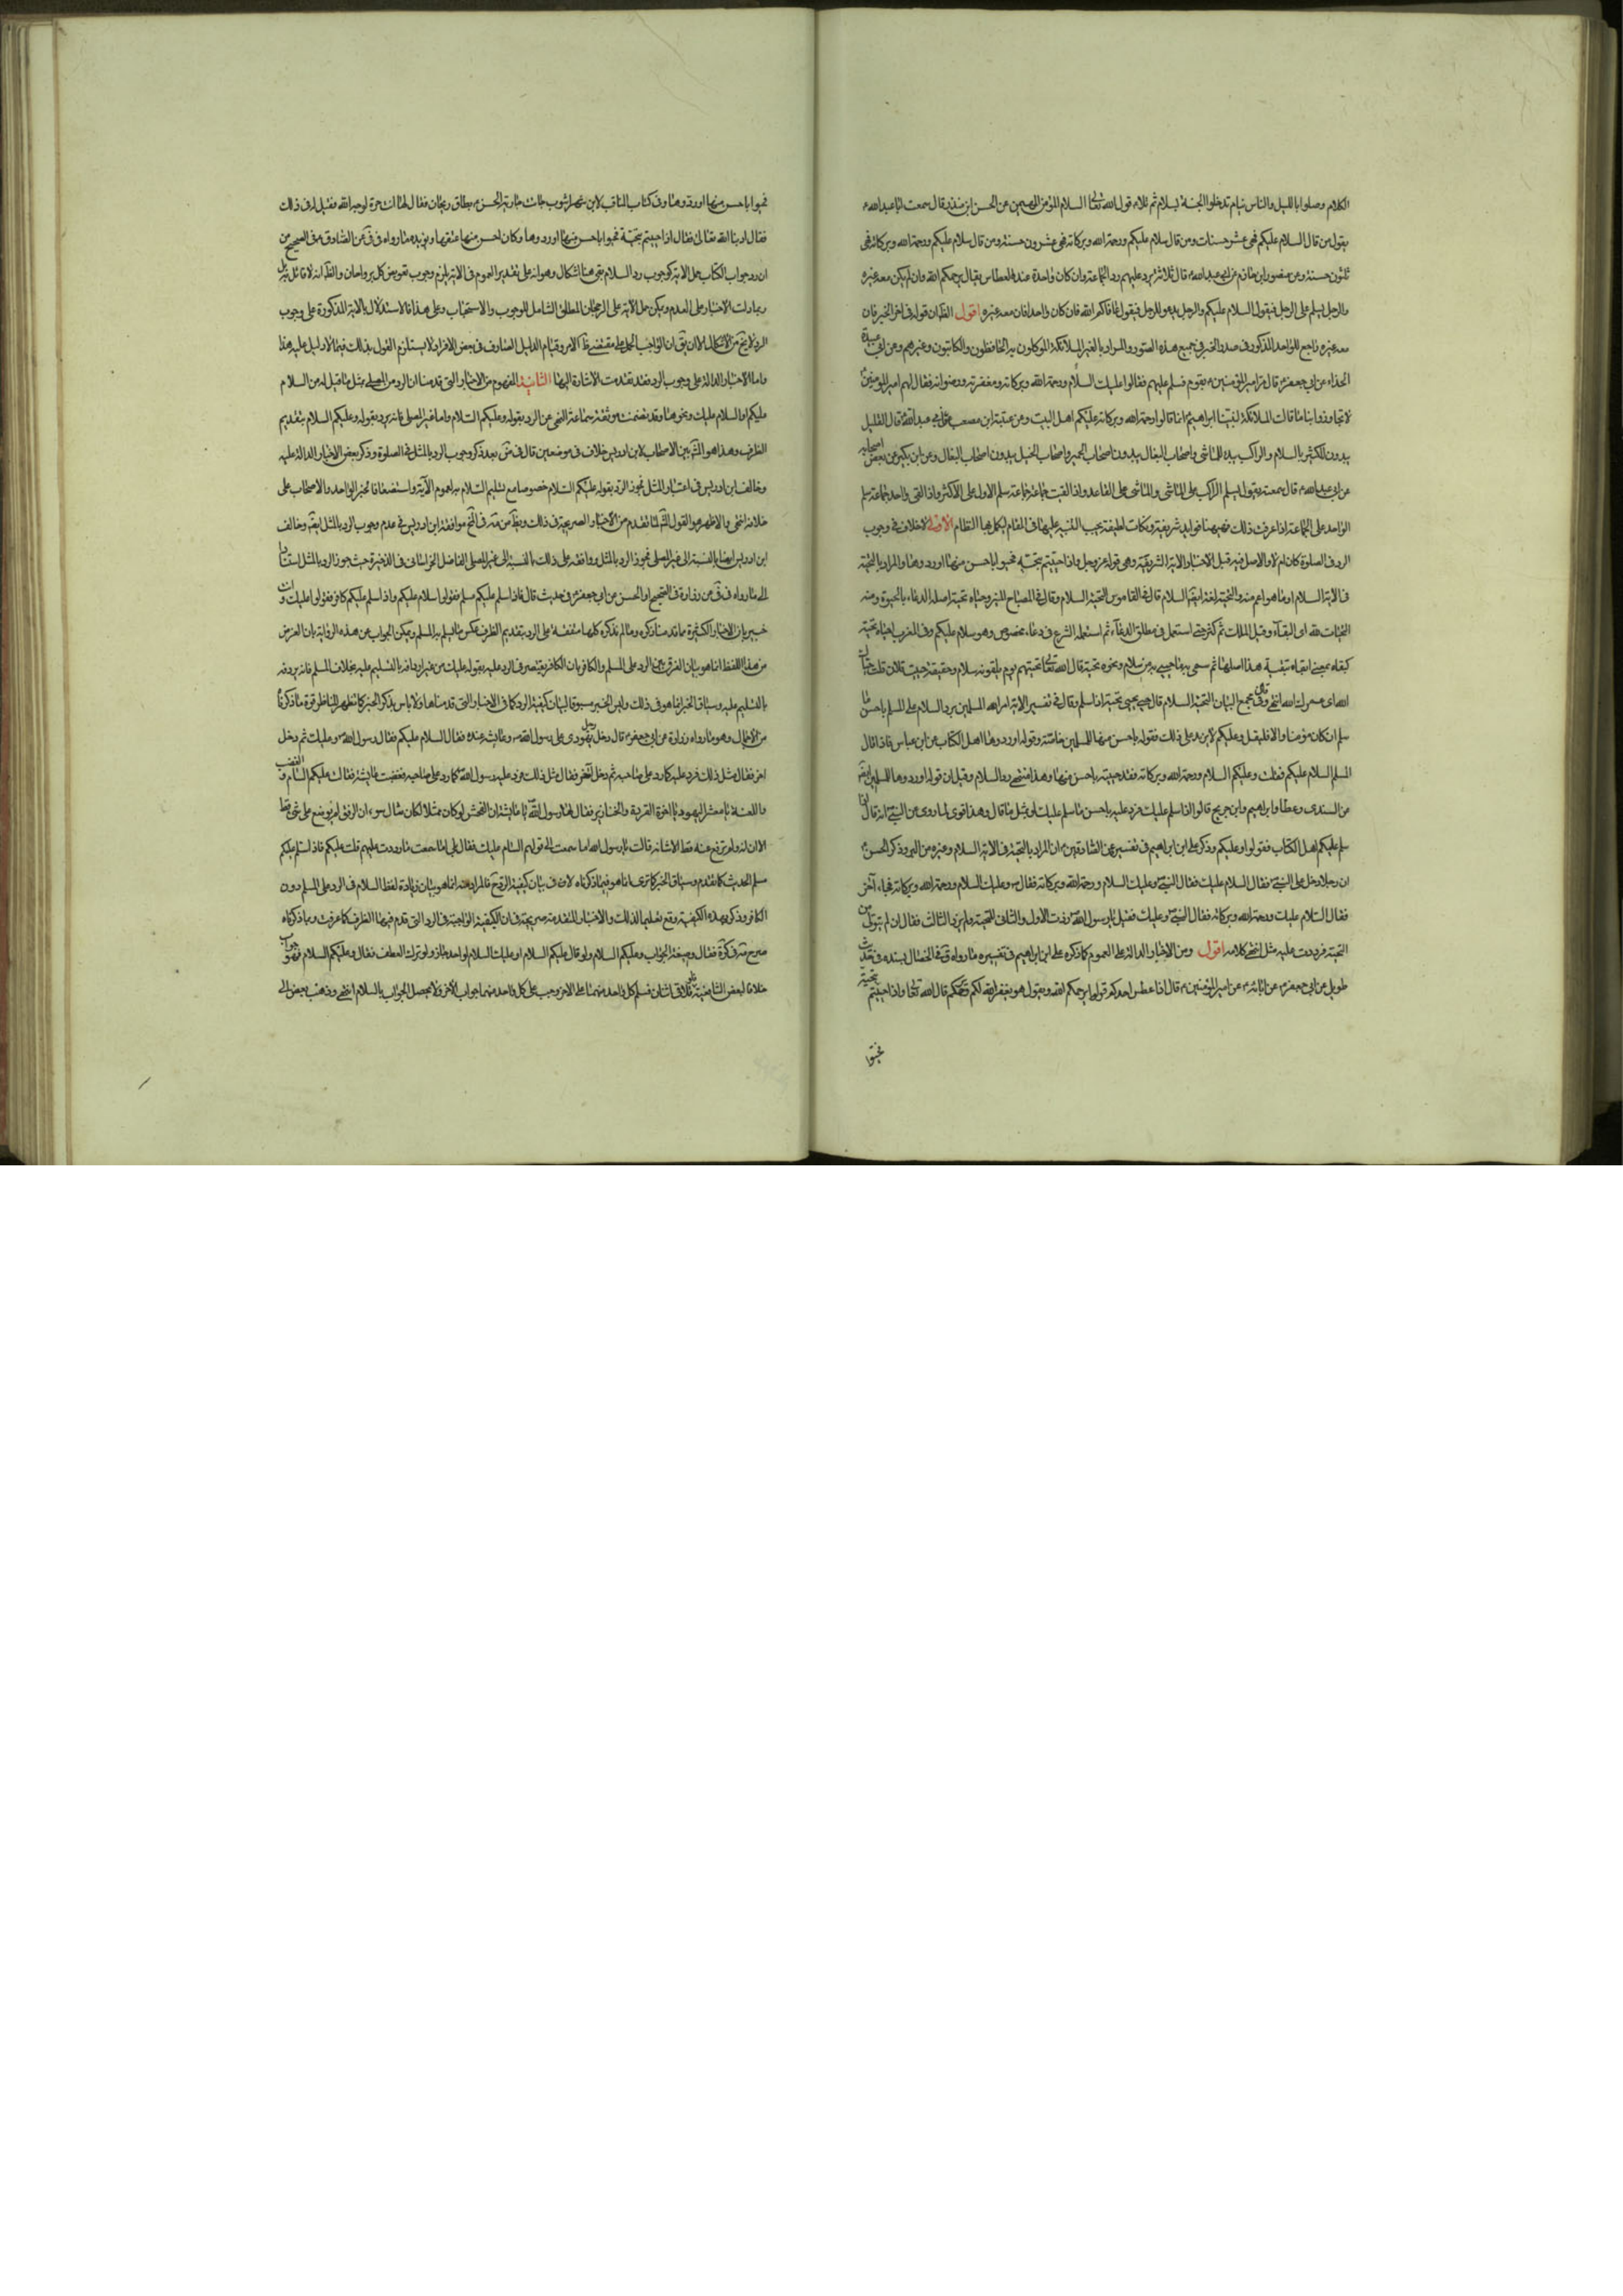 الكلام وصلوا بالليل والناس نيام تدخلوا الجنة بسلام ثم تلا قول الله تعالى السلام المؤمن المهيمن وعن الحسن ابن منذر قال سمعت ابا عبد الله ع
يقول من قال السلام عليكم فهي عشر حسنات ومن قال سلام عليكم ورحمة الله وبركاته فهي عشرون حسنة ومن قال سلام عليكم ورحمة الله وبركاته فهي
ثلثون حسنة وعن منصور ابن حازم عن ابي عبد الله ع قال ثلاثة يرد عليهم رد الجماعة وان كان واحدا عند العطاس يقال يرحمكم الله وان لم يكن معه غيره
والرجل يسلم على الرجل فيقول السلام عليكم والرجل يدعو للرجل فيقول عافاكم الله فان كان واحدا فان معه غيره اقول الظ ان قوله في اخر الخبر فان
معه غيره راجع للواحد المذكور في صدر الخبر في جميع هذه الصور والمراد بالغير الملائكة الموكلون به الحافظون والكاتبون وغيرهم وعن ابي عبيدة
الحذاء عن ابي جعفر ع قال مر امير المؤمنين ع بقوم فسلم عليهم فقالوا عليك السلام ورحمة الله وبركاته ومغفرته ورضوانه فقال لهم امير المؤمنين ع
لا تجاوزوا بنا ما قالت الملائكة لابينا ابراهيم ع انما قالوا رحمة الله وبركاته عليكم اهل البيت وعن عنبسة ابن مصعب عن ابي عبد الله ع قال القليل
يبدون الكثير بالسلام والراكب يبدء الماشي واصحاب البغال يبدون اصحاب الحمير واصحاب الخيل يبدون اصحاب البغال وعن ابن بكير عن بعض اصحابه
عن ابي عبد الله ع قال سمعته يقول يسلم الراكب على الماشي والماشي على القاعد واذا لقيت جماعة جماعة سلم الاقل على الاكثر واذا لقي واحد جماعة سلم
الواحد على الجماعة اذا عرفت ذلك فههنا فوايد شريفة ونكات لطيفة يجب التنبيه عليها في المقام ليكمل بها النظام الاولى لا خلاف في وجوب
الرد في الصلوة كان ام لا والاصل فيه قبل الاخبار الاية الشريفة وهي قوله عز وجل واذا حييتم بتحية فحيوا باحسن منها او ردوها والمراد بالتحية
في الاية السلام او ما هو اعم منه والتحية لغة ايضا السلام قال في القاموس التحية السلام وقال في المصباح المنير وحياه تحية اصله الدعاء بالحيوة ومنه
التحيات لله اي البقاء وقيل الملك ثم كثر حتى استعمل في مطلق الدعاء ثم استعمله الشرع في دعاء مخصوص وهو سلام عليكم وفي المغرب احياه تحية
كبقاه بمعنى ابقاه تبقية هذا اصلها ثم سمى به ما يحيى به من سلام ونحوه تحية قال الله تعالى تحيتهم يوم يلقونه سلام وحقيقة حييت فلان قلت حياك
الله اي عمرك الله انتهى وقال في مجمع البيان التحية السلام قال حيى يحيي تحية اذا سلم وقال في تفسير الاية امر الله المسلمين برد السلام على المسلم باحسن ما
سلم ان كان مؤمنا والا فليقل وعليكم لا يزيد على ذلك فقوله باحسن منها للمسلمين خاصة وقوله او ردوها اهل الكتاب عن ابن عباس فاذا قال
المسلم السلام عليكم فقلت وعليكم السلام ورحمة الله وبركاته فقد حييته باحسن منها وهذا منتهى رد السلام وقيل ان قوله او ردوها للمسلمين ايضا
عن السدي وعطا وابراهيم وابن جريج قالوا اذا سلم عليك فرد عليه باحسن ما سلم عليك او بمثل ما قال وهذا اقوى لما روي عن النبي ص انه قال اذا
سلم عليكم اهل الكتاب فقولوا وعليكم وذكر علي ابن ابراهيم في تفسيره عن الصادقين ع ان المراد بالتحية في الاية السلام وغيره من البر وذكر الحسن ع
ان رجلا دخل على النبي ص فقال السلام عليك فقال النبي ص وعليك السلام ورحمة الله وبركاته فجاء آخر
فقال السلام عليك ورحمة الله وبركاته فقال النبي ص وعليك فقيل يا رسول الله ص زدت الاول والثاني التحية ولم تزد الثالث فقال انه لم يبق لي من
التحية فرددت عليه مثله انتهى كلامه اقول ومن الاخبار الدالة على العموم كما ذكره علي ابن ابراهيم في تفسيره ما رواه في الخصال بسنده في حديث
طويل عن ابي جعفر ع عن ابائه ع عن امير المؤمنين ع قال اذا عطس احدكم قولوا يرحمكم الله ويقول هو يغفر الله لكم ويرحمكم قال الله تعالى واذا حييتم بتحية
فحيوا
فحيوا باحسن منها او ردوها وفي كتاب المناقب لابن شهراشوب جاءت جارية للحسن ع بطاق ريحان فقال لها انت حرة لوجه الله فقيل له في ذلك
فقال ادبنا الله تعالى فقال اذا حييتم بتحية فحيوا باحسن منها او ردوها وكان احسن منها عتقها ويؤيده ما رواه في في عن الصادق ع في الصحيح من
ان رد جواب الكتاب كوجوب رد السلام بقي هنا اشكال وهو انه على تقدير العموم في الاية يلزم وجوب تعويض كل بر واحسان والظ انه لا قائل به بل
وبما دلت الاخبار على العدم ويمكن حمل الاية على الرجحان المطلق الشامل للوجوب والاستحباب وعلى هذا فالاستدلال بالاية المذكورة على وجوب
الرد لا يخ من الاشكال الا ان يق ان الواجب الحمل على مقتضى ظاهر الامر وقيام الدليل الصارف في بعض الافراد لا يستلزم القول بذلك فيما لا دليل عليه هذا
واما الاخبار الدالة على وجوب الرد فقد تقدمت الاشارة اليها الثانية المفهوم من الاخبار التي قدمنا ان الرد من المصلي بمثل ما قيل له من السلام
عليكم او السلام عليك ونحوهما وقد تضمنت موثقة سماعة النهي عن الرد بقوله وعليكم السلام واما غير المصلي فانه يرد بقوله وعليكم السلام بتقديم
الظرف وهذا هو المش بين الاصحاب لابن ادريس خلاف في موضعين قال في بعد ذكر وجوب الرد بالمثل في الصلوة وذكر بعض الاخبار الدالة عليه
وخالف ابن ادريس في اعتبار المثل فجوز الرد بقوله عليكم السلام خصوصا مع تسليم السلام به لعموم الآية واستضعافا لخبر الواحد والاصحاب على
خلافه انتهى والاظهر هو القول المش لما تقدم من الاخبار الصريحة في ذلك موافقة ابن ادريس في عدم وجوب الرد بالمثل ايضا وخالف
ابن ادريس ايضا بالنسبة الى غير المصلي فجوز الرد بالمثل ووافقه على ذلك بالنسبة الى غير المصلي الفاضل الخراساني في الذخيرة حيث جوز الرد بالمثل استنادا
الى ما رواه في في عن زرارة في الصحيح او الحسن عن ابي جعفر ع في حديث قال فاذا سلم عليكم مسلم فقولوا سلام عليكم واذا سلم عليكم كافر فقولوا عليك وانت
خبير بان الاخبار الكثيرة مما قدمنا ذكره وما لم نذكره كلها متفقة على الرد بتقديم الظرف عكس ما يسلم به المسلم ويمكن الجواب عن هذه الرواية بان الغرض
من هذا اللفظ انما هو بيان الفرق بين الرد على المسلم والكافر بان الكافر يقتصر في الرد عليه بقوله عليك من غير اردافه بالتسليم عليه بخلاف المسلم فانه يردفه
بالتسليم عليه وسياق الخبر انما هو في ذلك وليس الخبر مسوقا لبيان كيفية الرد كما في الاخبار التي قدمناها ولا باس بذكر الخبر كما تظهر للناظر قوة ما ذكرنا
من الاحتمال وهو ما رواه زرارة عن ابي جعفر ع قال دخل رجل يهودي على رسول الله ص وعايشة عنده فقال السام عليكم فقال رسول الله ص وعليك ثم دخل
اخر فقال مثل ذلك فرد عليه كما رد على صاحبه ثم دخل آخر فقال مثل ذلك فرد عليه رسول الله ص كما رد على صاحبيه فغضبت عايشة فقالت عليكم السام والغضب
واللعنة يا معشر اليهود يا اخوة القردة والخنازير فقال لها رسول الله ص يا عايشة ان الفحش لو كان ممثلا لكان مثال سوء ان الرفق لم يوضع على شيء قط
الا زانه ولم يرفع عنه قط الا شانه قالت يا رسول الله اما سمعت الى قولهم السام عليك فقال بلى اما سمعت ما رددت عليهم قلت عليكم فاذا سلم عليكم
مسلم الحديث كما تقدم وسياق الخبر كما ترى انما هو فيما ذكرناه لان في بيان كيفية الرد فالمراد منه انما هو بيان زيادة لفظ السلام في الرد على المسلم دون
الكافر وذكر بهذه الكيفية وقع تعليما لذلك والاخبار المتقدمة صريحة في ان الكيفية الواجبة في الرد التي قدم فيها الظرف كما عرفت وبما ذكرناه
صرح في كره فقال وصيغة الجواب وعليكم السلام ولو قال عليكم السلام او عليك السلام لواحد جاز ولو ترك العطف فقال عليكم السلام فهو جواب
خلافا لبعض الشافعية فلو تلاقى اثنان فسلم كل واحد منهما على الاخر وجب على كل واحد منهما جواب الاخر ولا يحصل الجواب بالسلام انتهى وذهب بعض الى